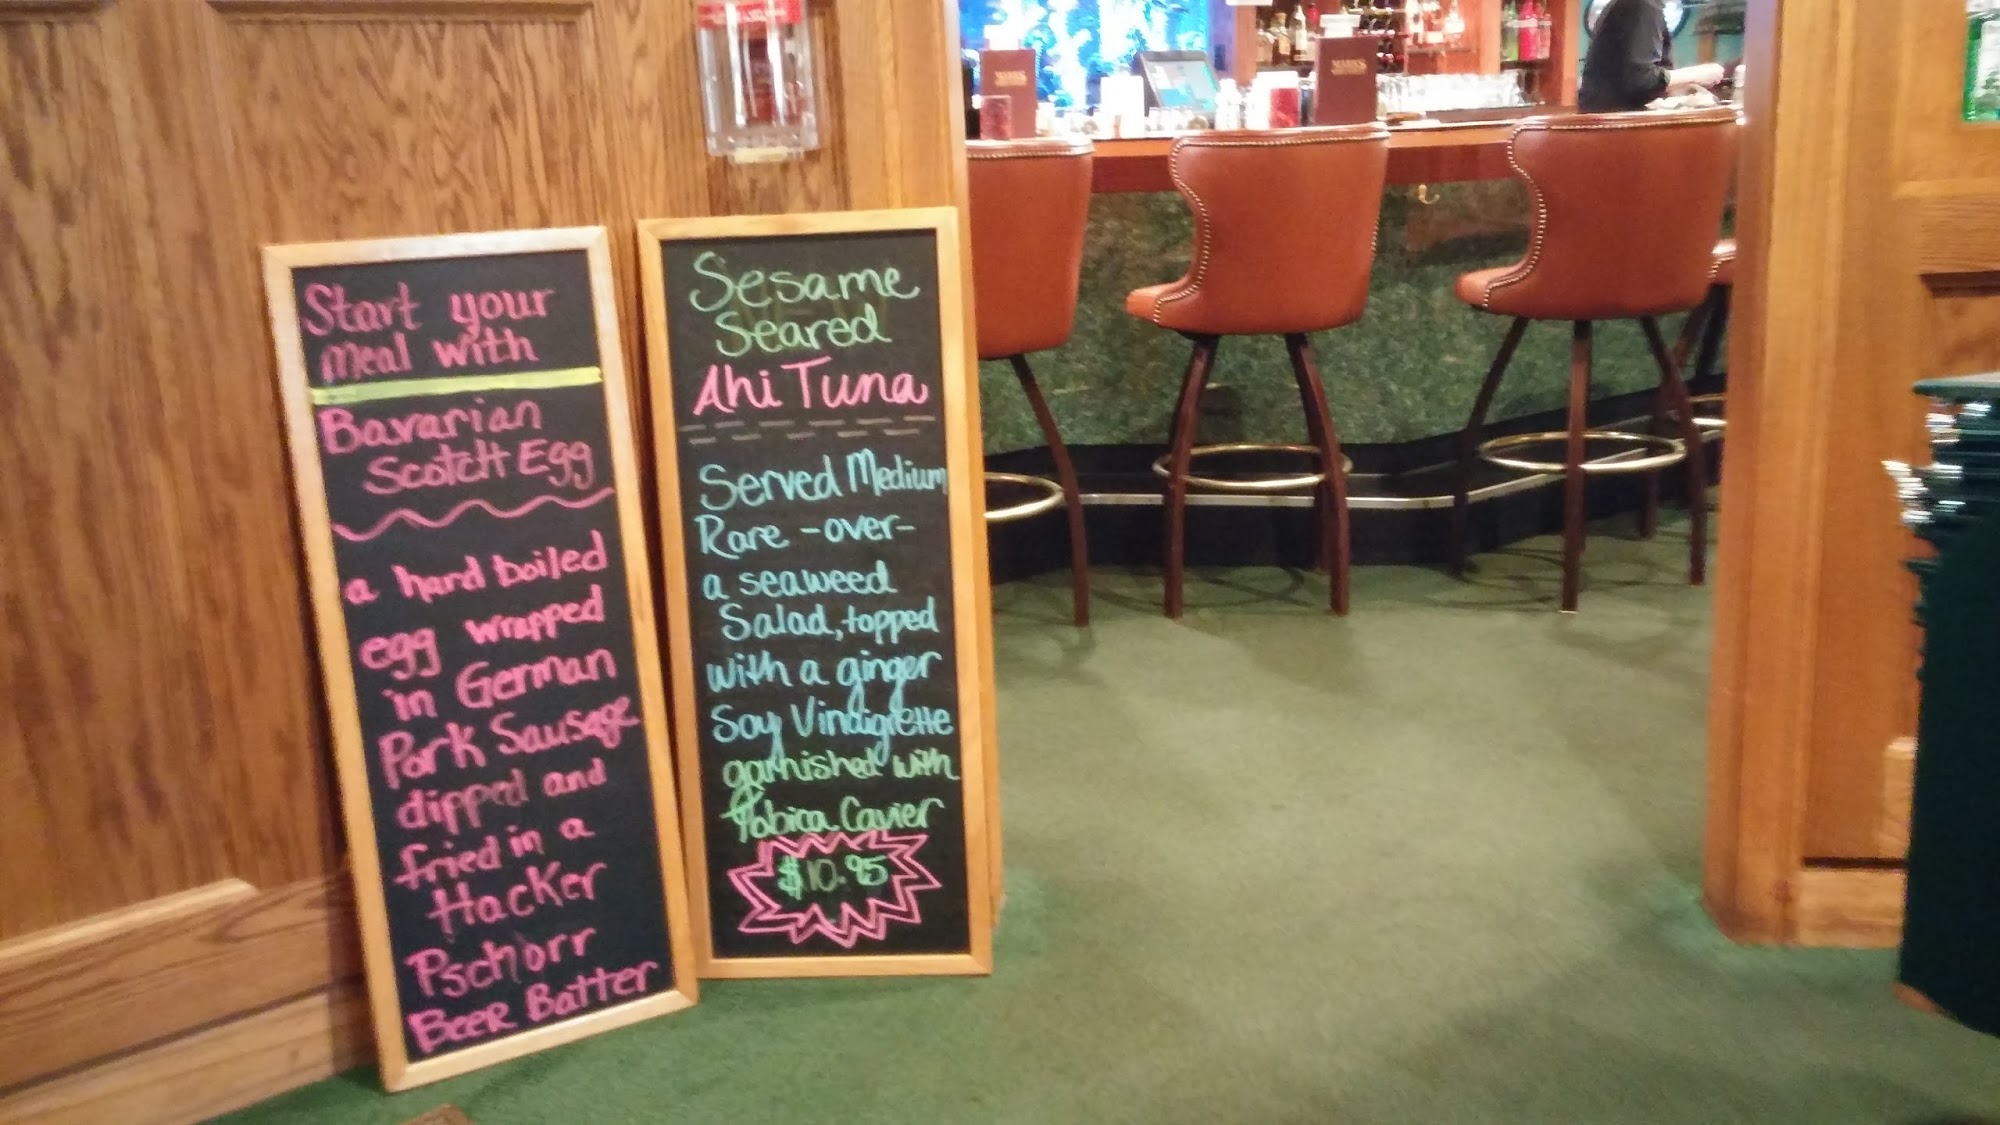 Start your
meal with
Bavarian
Scotch Egg
a hard boiled
egg wrapped
in German
Pork Sausage
dipped and
fried in a
Hacker
Pschorr
Beer Batter
Sesame
Seared
Ahi Tuna
Served Medium
Rare -over-
a seaweed
Salad, topped
with a ginger
Soy Vinaigrette
garnished with
Tobica Cavier
$10.95